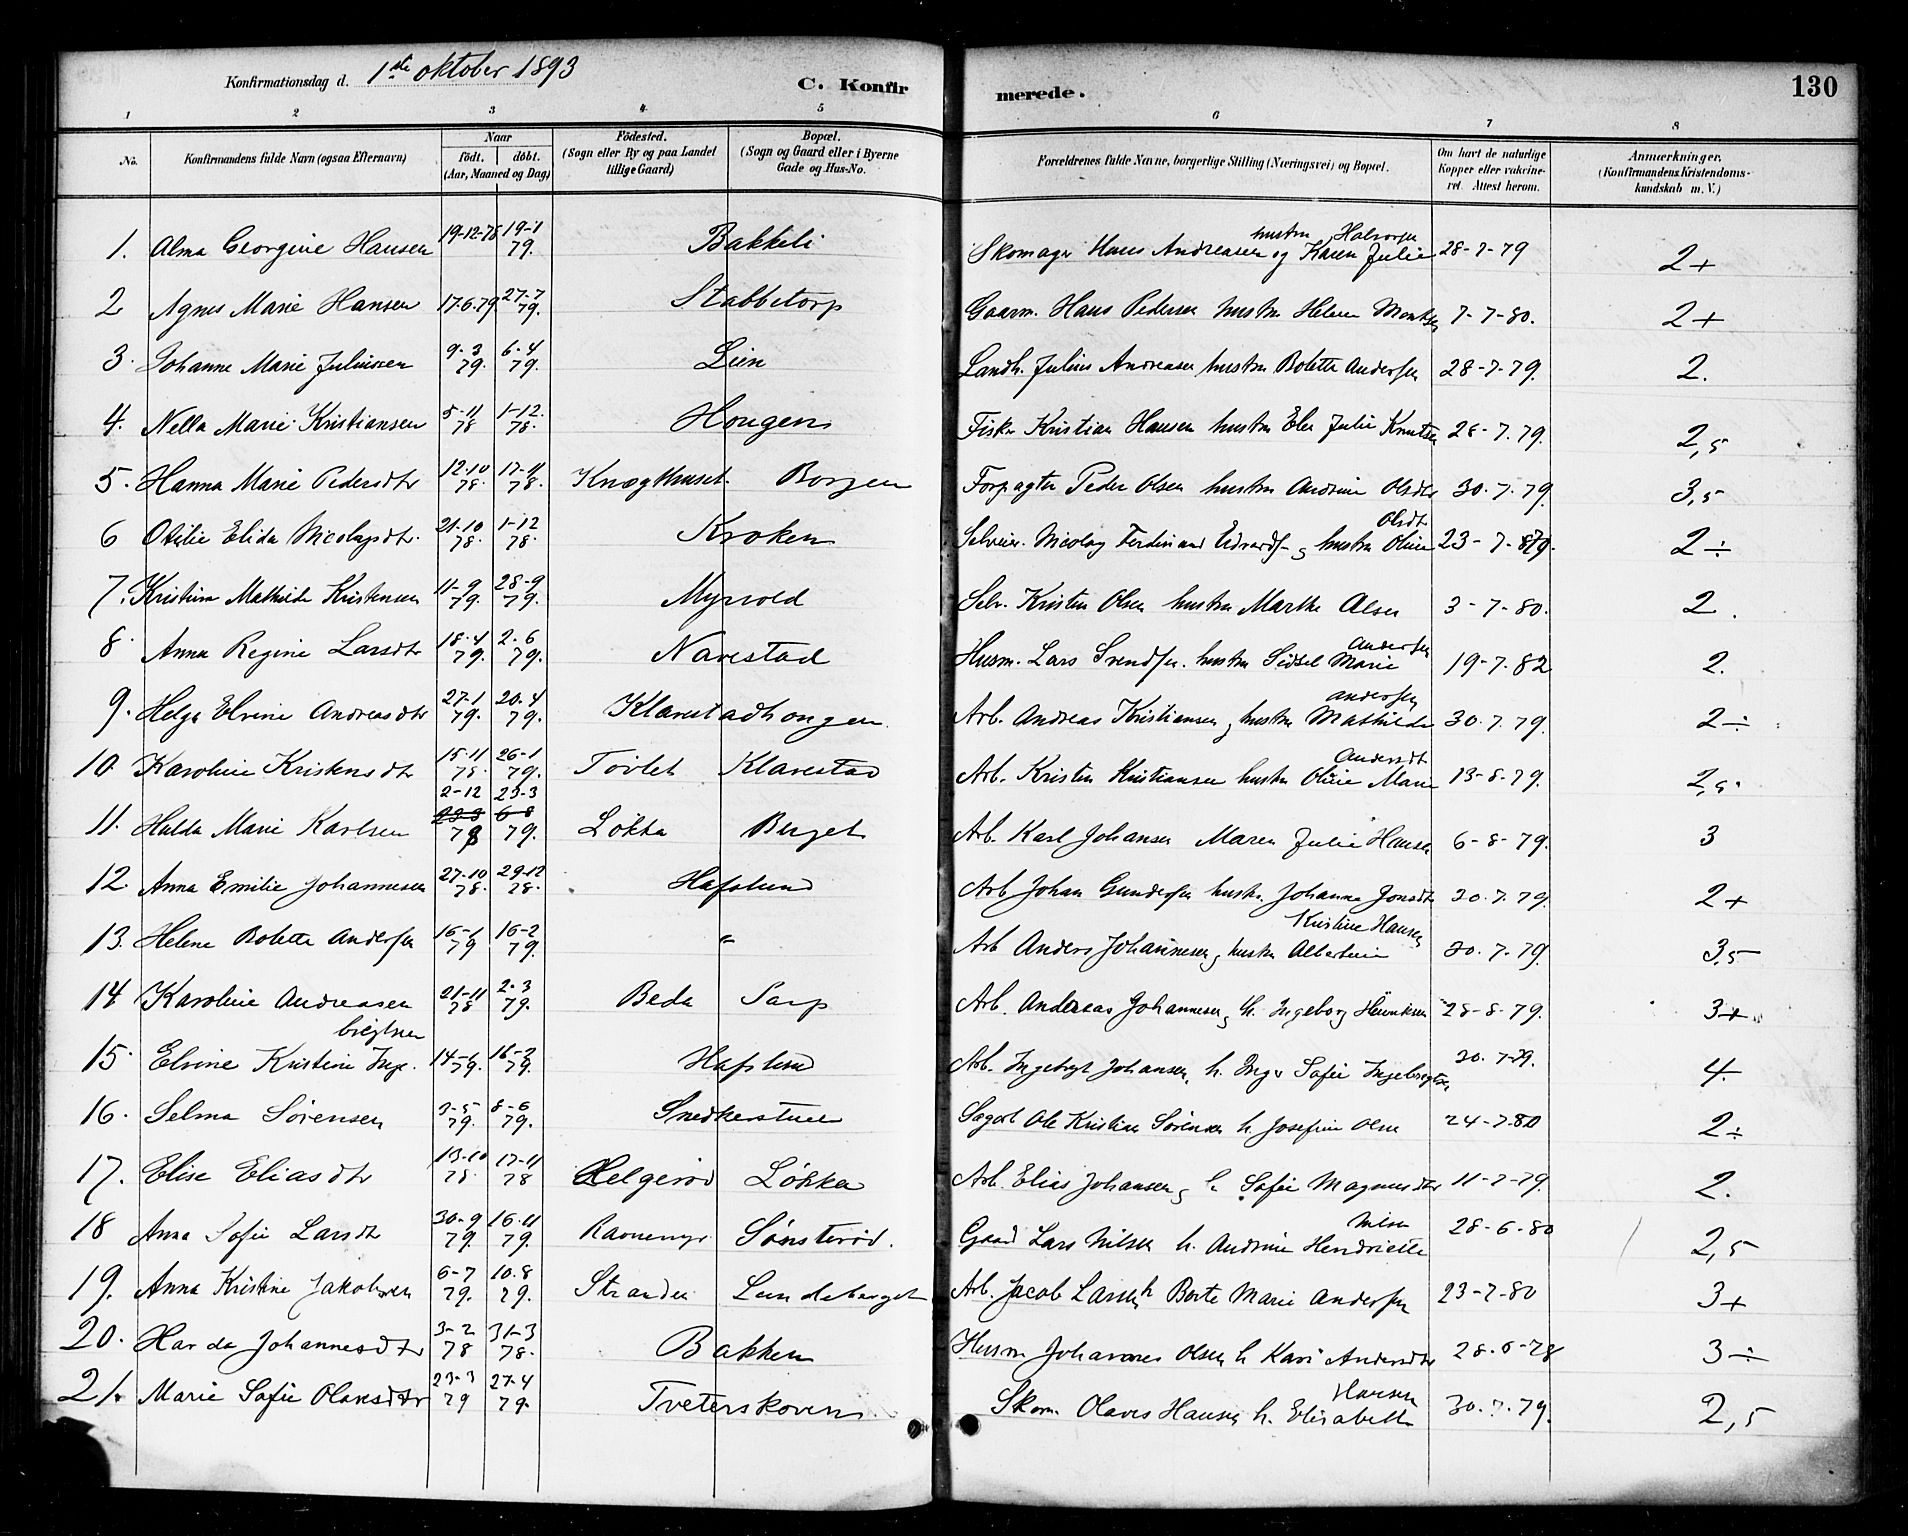 Konfirmationsdag d. 1ste oktober 1893 C. Konfir merede. 130
1 2 3 4 5 6 7 8
No. Konfirmandens fulde Navn (ogsaa Efternavn) Naar født. døbt. (Aar, Maaned og Dag) Födested. (Sogn eller By og paa Landet tillige Gaard) Bopæl. (Sogn og Gaard eller i Byerne Gade og Hus-No. Forældrenes fulde Navne, borgerlige Stilling (Næringsvei) og Bopæl. Om havt de naturlige Kopper eller vakcineret. Attest herom. Anmærkninger. (Konfirmandens Kristendomskundskab m. V.)
1. Alma Georgine Hansen 19-12-78 19-1 79. Bakkeli Skomager Hans Andreasen og hustru Karen Julie Halvorsen 28-7-79 2+
2 Agnes Marie Hansen 17-6-79. 27-7 79. Stabbetorp Gaarm. Hans Pedersen hustru Helene 7-7-80. 2+
3. Johanne Marie Juliussen 9-3 79. 6-4 79. Lien Landh. Julius Andreasen hustru Bolette Andersen 28-7-79. 2.
4. Nella Marie Kristiansen 5-11 78 1-12. 78. Hougen Fisker Kristian Hansen hustru Elen Julie Knutsen 28-7.79. 2,5
5. Hanna Marie Pedersdtr 12-10 78. 17-11 78. Borgen Forpagter Peder Olsen hustru Andrine Olsdtr 30.7.79. 3,5
6 Otilie Elida Nicolaysdtr. 21-10 78. 1-12 78. Kroken Selveier. Nicolay Ferdinand Edvards- og hustru Oline Olsdt 23-7-79. 2÷
7. Kristine Mathilde Kristensen 11-9 79. 28-9 79. Myrvold Selv. Kristen Olsen hustru Marthe Olsen 3-7-80. 2.
8. Anna Regine Larsdtr 18-4 79. 2-6 79. Navestad Husm. Lars Svendsen. hustru Sidsel Marie Andersen 19-7-82 2.
9. Helga Elvine Andreasdtr 27-1 79. 20.4 79. Klavestadhougen. Arb. Andreas Kristiansen og hustru Mathilde andersen 30.7.79. 2÷
10. Karoline Kristensdtr 15-11 78. 26-1 79. Klavestad Arb. Kristen Kristiansen hustru Oline Marie Andersdt 13-8-79. 2,5
11. Hulda Marie Karlsen 2-12 78 23-3 79. Løkka Berget Arb. Karl Johansen Maren Julie Hansen 6-8-79. 3
12. Anna Emilie Johannesen 27-10 78. 29-12 78. Hafslund Arb Johan Gundersen hustru Johanna Jonsdtr 30.7.79. 2+
13. Helene Bolette Andersen 16-1 79 16-2 79. " Arb Anders Johannesen og hustru Albertine Kristine Hansen 30.7.79. 3,5
14 Karoline Andreasen 21-11 78 2-3 79. Beda Sarp Arb. Andreas Johannesen og h. Ingeborg Henriksen 28-8-79. 3+
15. Elvine Kristine Ingebrigtsen 14-1 79. 16-2 79. Hafslund Arb. Ingebrigt Johansen. h. Inger Sofie Ingebrigtsen 30.7-79. 4.
16. Selma Sørensen 3-5 79. 8-6 79. Snedkerstuen Ole Kristian Sørensen h. Josefine Olsen 24-7-80 2÷
17. Elise Eliasdtr 13-10 78. 17-11 78 Helgerød Løkka Arb. Elias Johansen og h. Sofie Magnusdtr 11-7-79. 2.
18 Anna Sofie Larsdtr 30-9 79. 16-11 79. Ravnemyr Sønsterød. Gaard Lars Nilsen h. Andrine Henriette Nilsen 28-6-80 2,5
19. Anna Kristine Jakobsen 6-7 79. 10.8 79. Stranden Lundeberget Arb. Jacob Larsen h Berte Marie Andersen 23-7-80 3+
20. Harda Johannesdtr 3-2 78 31-3 78. Bakken Husm Johannes Olsen h Kari Andersdtr 28.6-78 3÷
21. Marie Sofie Olavesdtr 23-3 79 27-4 79. Tveterskoven Skom. Olaves Hansen h. Elisabeth Hansen 30.7.79. 2,5